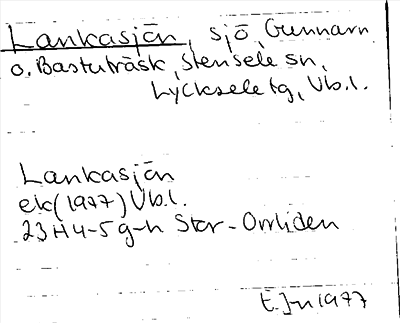 Lankasjön, sjö, Gunnarn
o. Bastuträsk, Stensele sn,
Lycksele tg, Vb.l.
Lankasjön
ek (1977) Vb.l.
23H4-5g-h Stor-Orrliden
E.J-n 1977